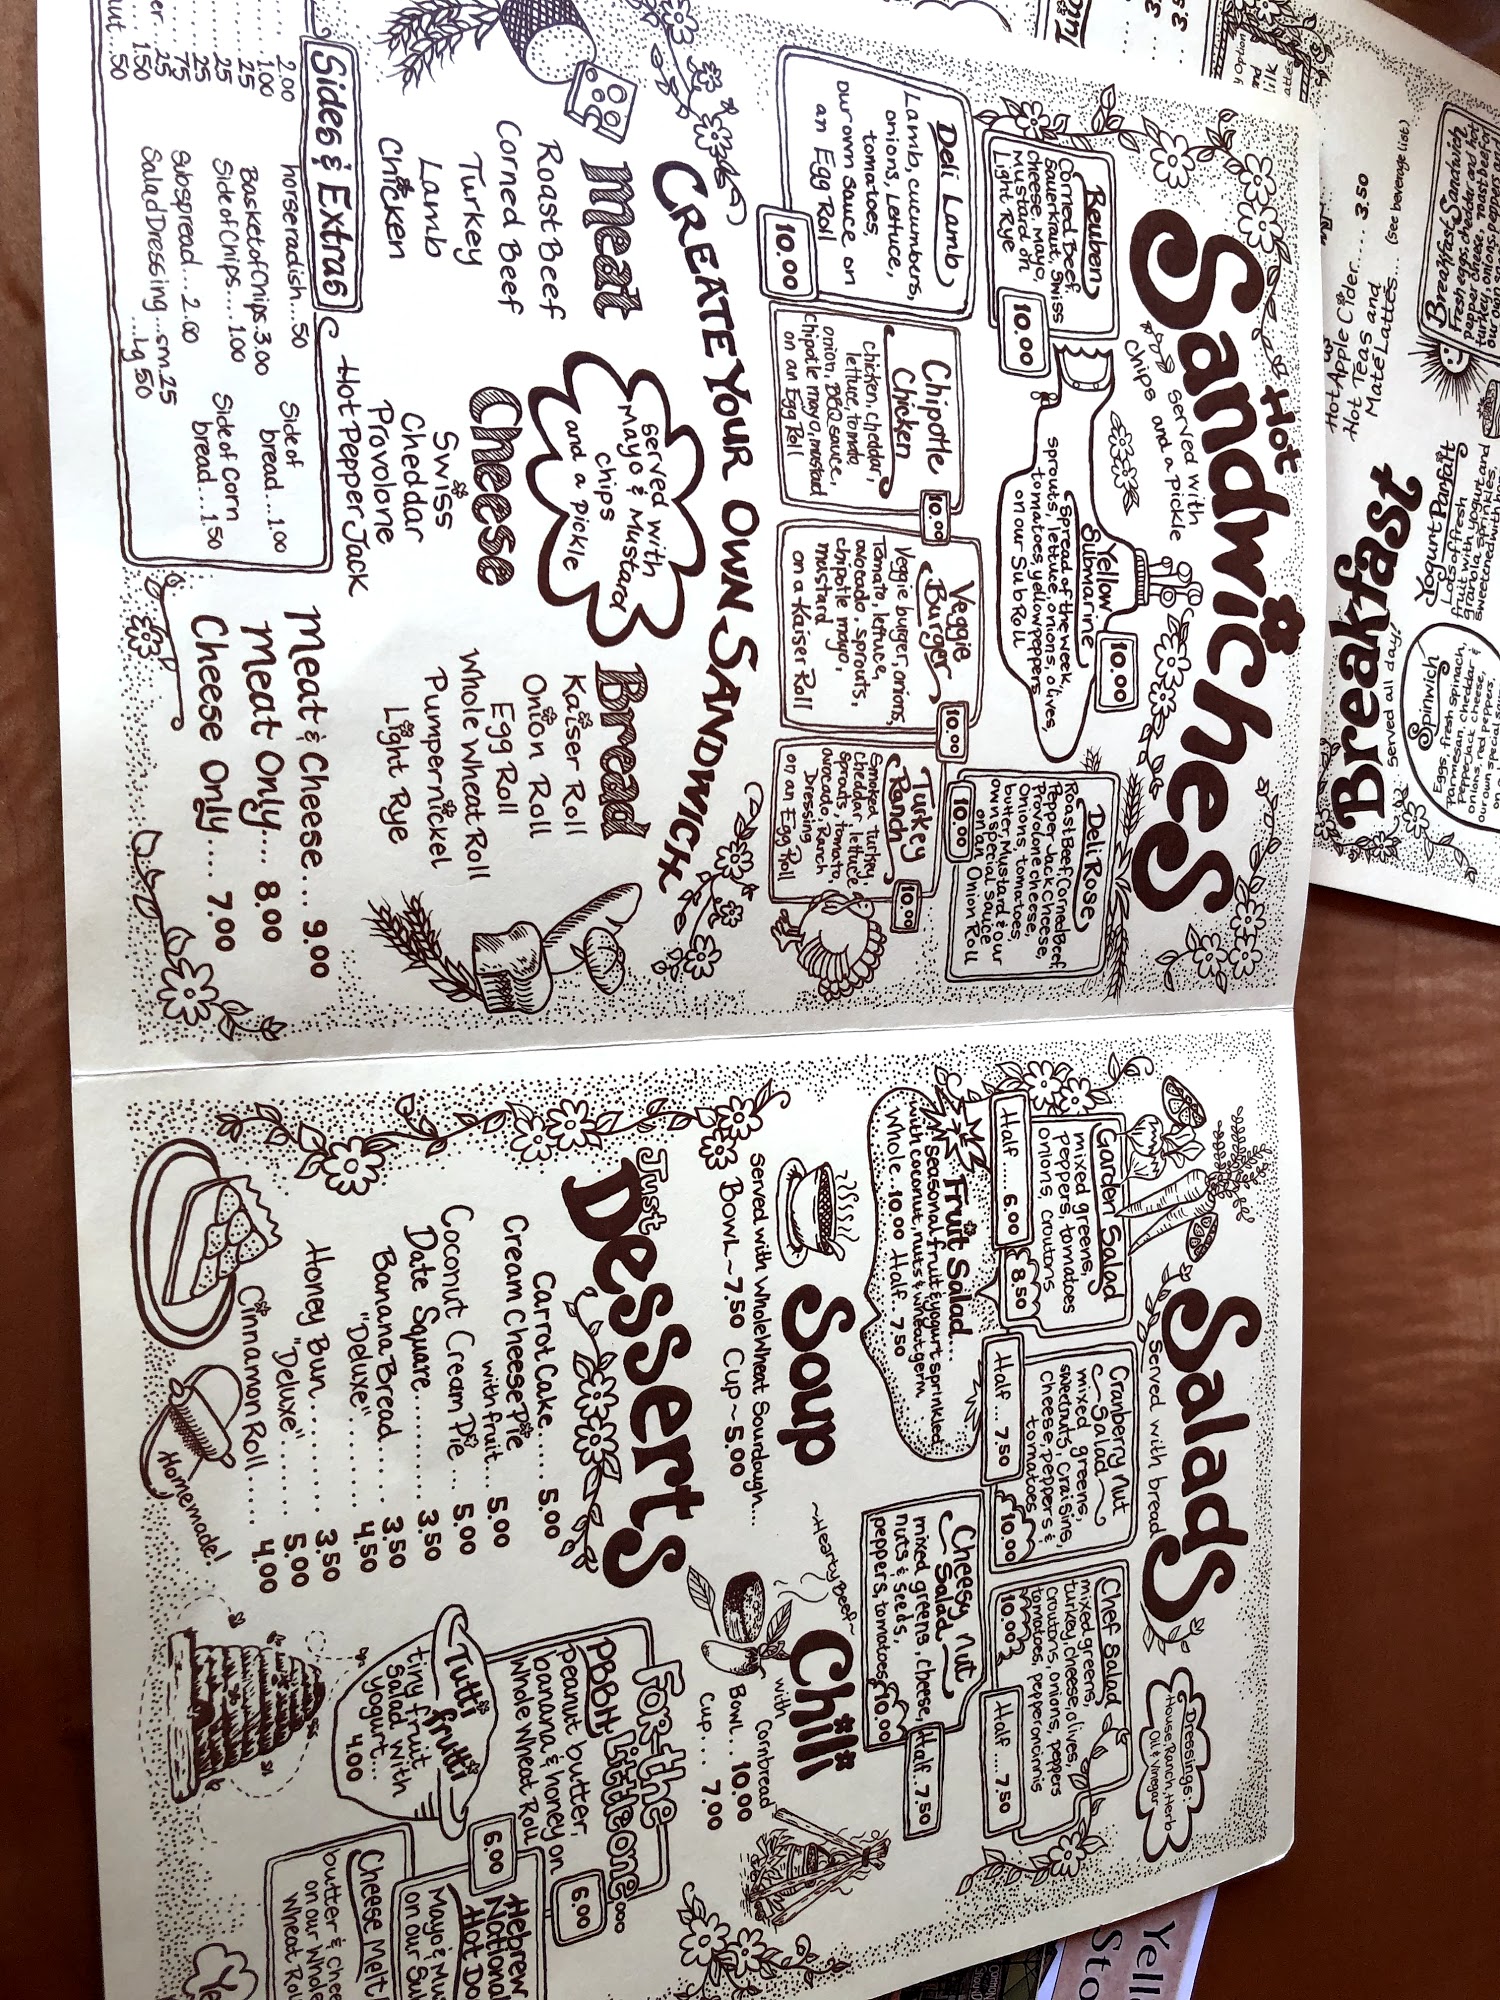 Hot
Sandwiches
served with
chips and a pickle
Reuben
Corned Beef,
Sauerkraut, Swiss
Cheese, Mayo,
Mustard on
Light Rye
10.00
Yellow
Submarine
spread of the week,
sprouts, lettuce, onions, olives,
tomatoes, yellow peppers,
on our Sub Roll
10.00
Deli Rose
Roast Beef, Corned Beef
Pepper Jack Cheese,
Provolone cheese,
Onions, tomatoes,
butter, Mustard & our
own special sauce
on an Onion Roll
10.00
Deli Lamb
Lamb, cucumbers,
onions, lettuce,
tomatoes,
our own sauce on
an Egg Roll
10.00
Chipotle
Chicken
chicken, cheddar,
lettuce, tomato,
onion, BBQ sauce,
chipotle mayo, mustard
on an Egg Roll
10.00
Veggie
Burger
Veggie burger, onions,
Tomato, lettuce,
avocado, sprouts,
chipotle mayo,
mustard
on a Kaiser Roll
10.00
Turkey
Ranch
Smoked turkey
cheddar, lettuce
sprouts, tomato
avocado, Ranch
Dressing
on an Egg Roll
10.00
CREATE YOUR OWN SANDWICH
Meat
Roast Beef
Corned Beef
Turkey
Lamb
Chicken
served with
Mayo & Mustard
chips
and a pickle
Cheese
Swiss
Cheddar
Provolone
Hot Pepper Jack
Bread
Kaiser Roll
Onion Roll
Egg Roll
Whole Wheat Roll
Pumpernickel
Light Rye
Meat & Cheese... 9.00
Meat Only... 8.00
Cheese Only.... 7.00
Sides & Extras
2.00
1.00
25
25
25
75
25
1.50
50
horseradish...50
Basket of Chips 3.00
Side of Chips.... 1.00
Subspread... 2.00
Salad Dressing ...sm.25
...lg 50
Side of
bread... 1.00
Side of Corn
bread... 1.50
Salads
Served with bread
Dressings:
House, Ranch, Herb
Oil & Vinegar
Garden Salad
mixed greens,
peppers, tomatoes
onions, croutons
Half ... 6.00
8.50
Cranberry Nut
Salad
mixed greens,
sweetnuts, craisins,
cheese, peppers &
tomatoes
Half ... 7.50
10.00
Chef Salad
mixed greens,
turkey, cheese, olives,
croutons, onions, peppers
tomatoes, pepperoncinnis
10.00
Half .... 7.50
Fruit Salad...
seasonal fruit & yogurt sprinkled
with coconut, nuts & wheat germ
Whole...10.00 Half..7.50
Cheesy Nut
Salad
mixed greens, cheese,
nuts & seeds,
peppers, tomatoes
10.00
Half..7.50
Soup
served with Whole Wheat Sourdough....
BOWL~7.50 Cup~5.00
~Hearty Beef~
Chili
with Cornbread
Bowl... 10.00
Cup.... 7.00
Just
Desserts
Carrot Cake.... 5.00
Cream Cheese Pie
with fruit... 5.00
Coconut Cream Pie... 5.00
Date Square....... 3.50
Banana Bread...... 3.50
"Deluxe"......... 4.50
Honey Bun......... 3.50
"Deluxe"....... 5.00
Cinnamon Roll..... 4.00
Homemade!
For the
Little one...
PBBH
peanut butter,
banana & honey on
Whole Wheat Roll
6.00
Tutti
frutti
tiny fruit
salad with
yogurt...
4.00
Hebrew
National
Hot Do
Mayo & Mus
on our Su
6.00
Cheese Melt
butter & Chee
on our Whole
Wheat Rol
Ye
Hot Apple Cider..... 3.50
Hot Teas and
Maté Lattes... (see beverage list)
Breakfast
served all day!
Breakfast Sandwich
Fresh eggs, cheddar and hot
pepper cheese, roast beef or
turkey, onions, peppers and
our own
Yogurt Parfait
Lots of fresh
fruit with yogurt and
granola, sprinkles,
sweetened with hon
Spinwich
Eggs, fresh spinach,
parmesan, cheddar &
Pepperjack cheese,
onions, red peppers,
our own special
Yell
Sto